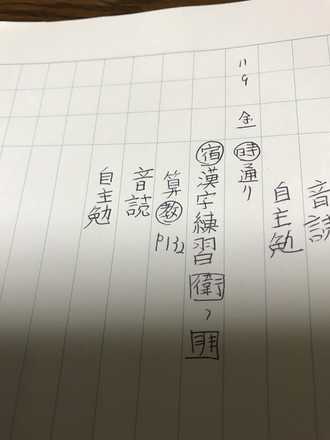 音読
自主勉
11 9 金 時通り
宿漢字練習 衛 〜
算教 P132
音読
自主勉